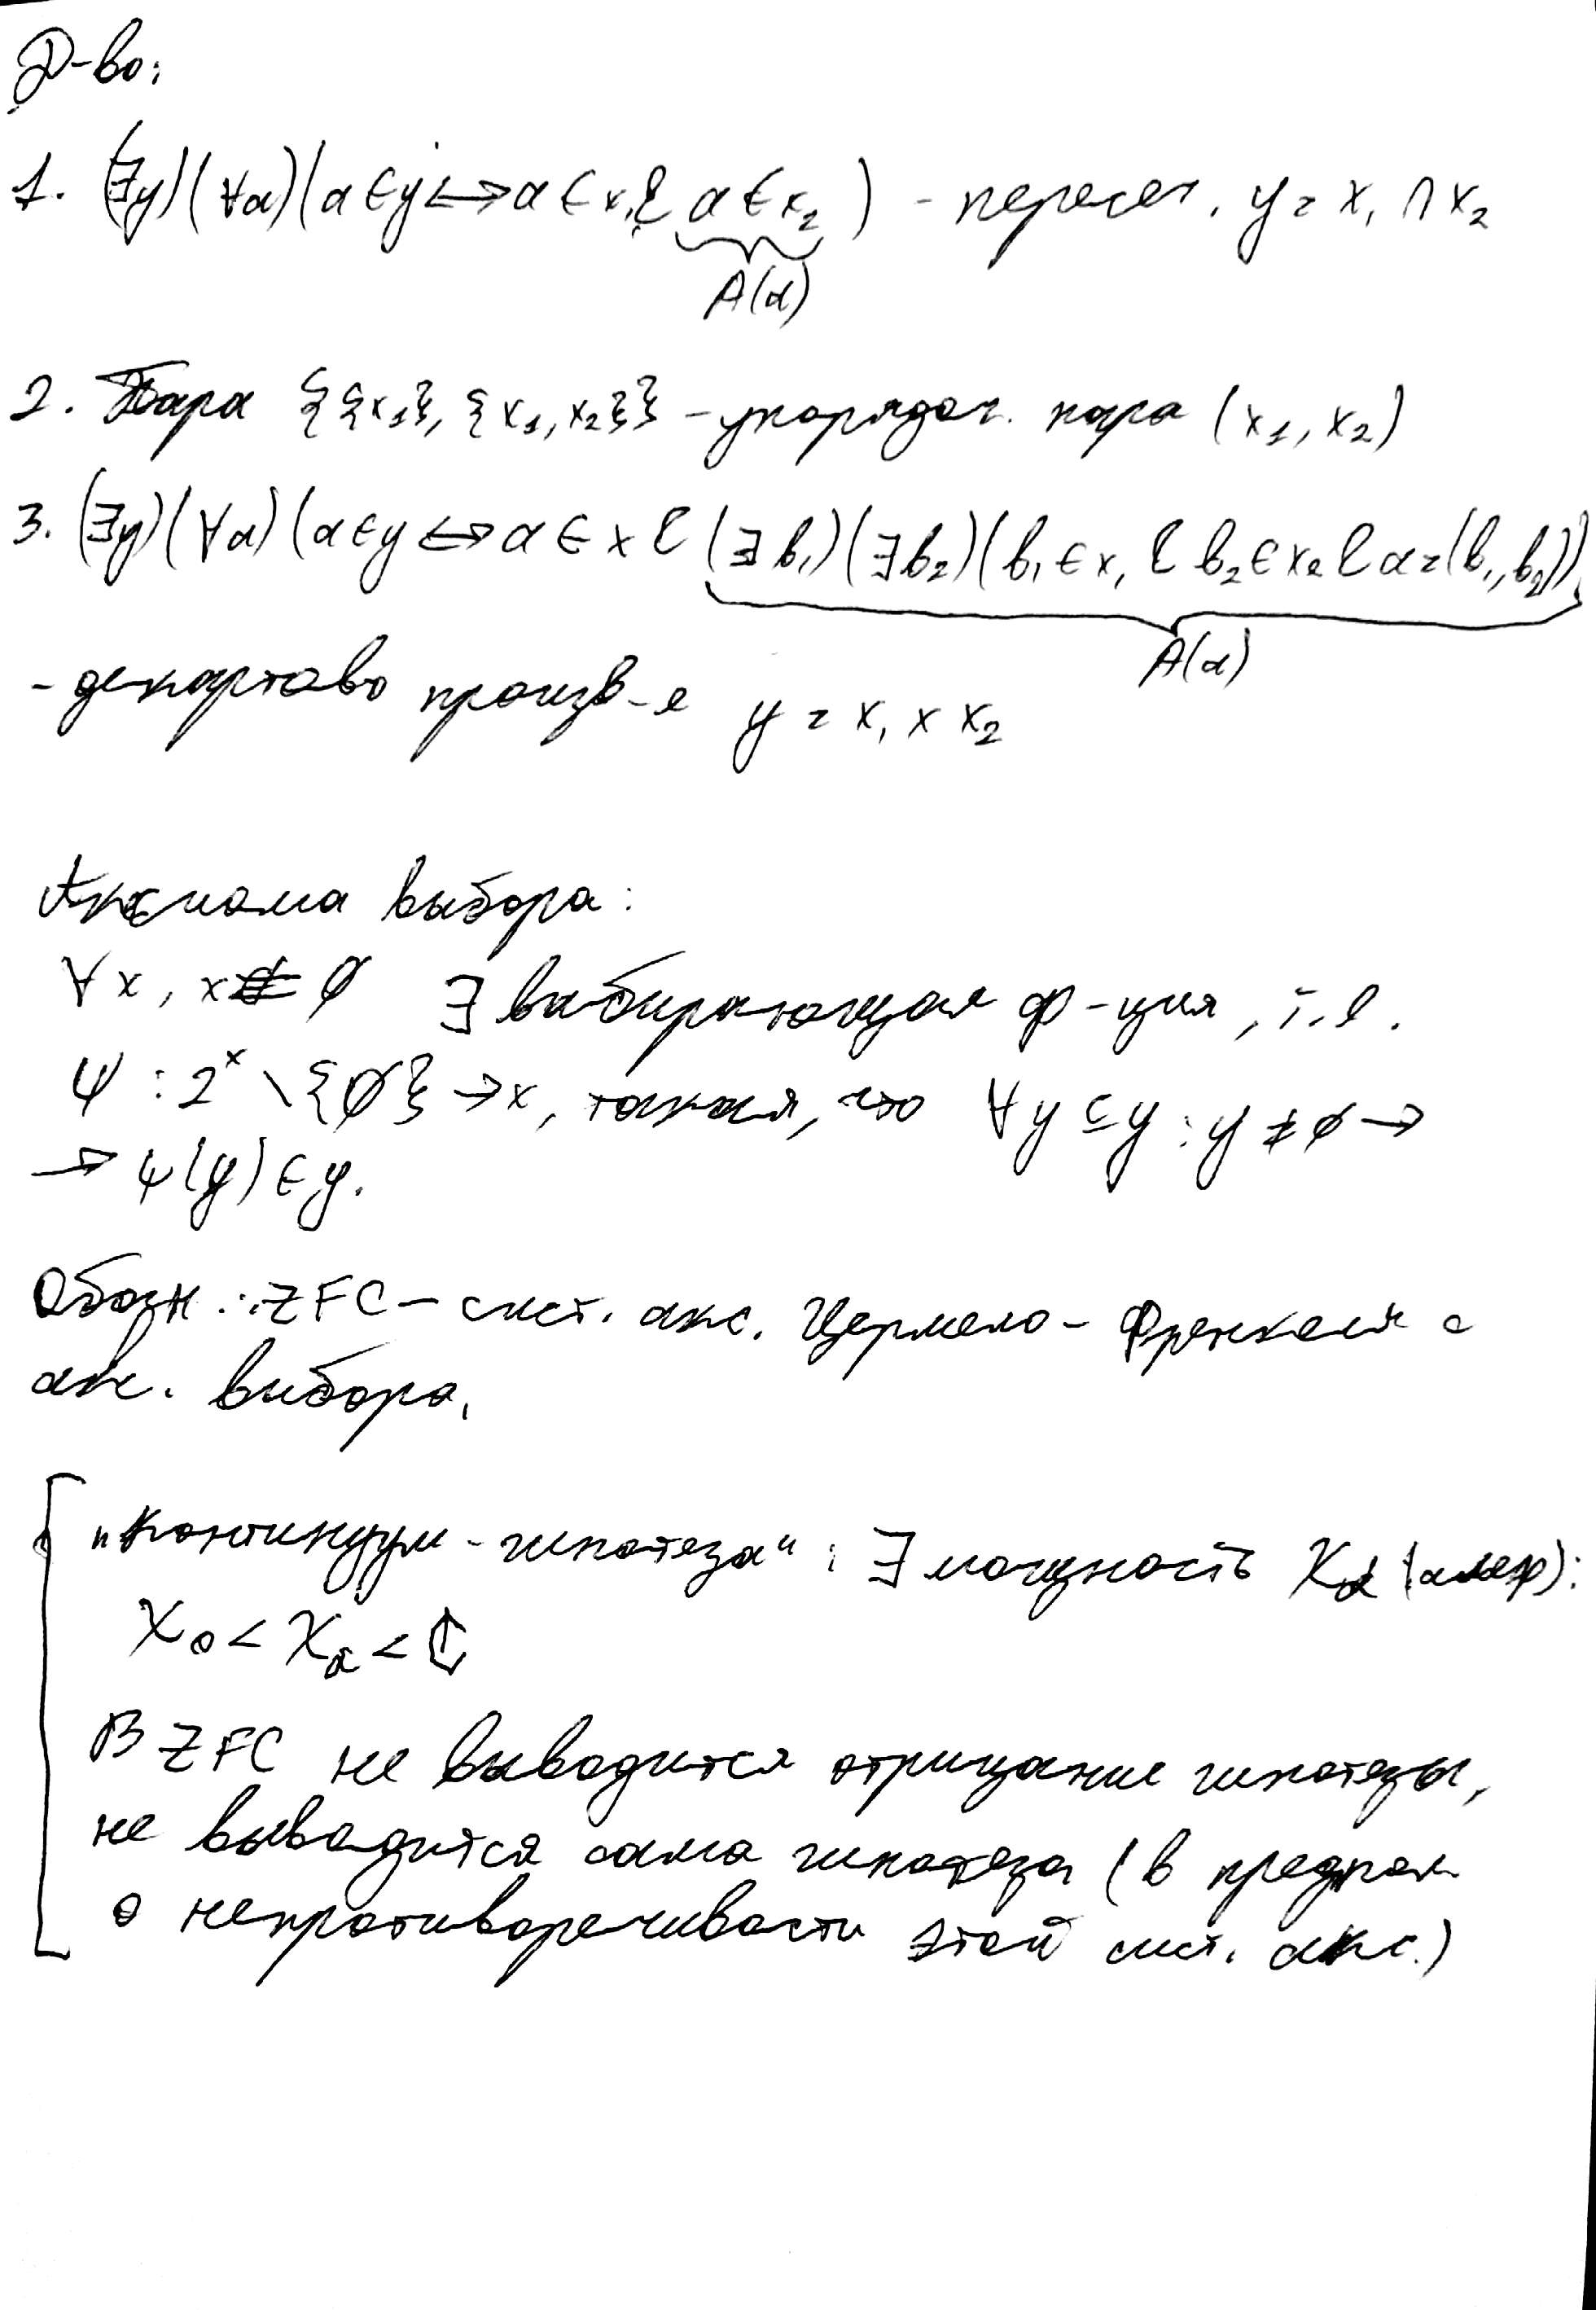 Д-во:
1. (∃y)(∀a)(a∈y⟷a∈x₁ & a∈x₂) - пересеч. y = x₁ ∩ x₂
A(a)
2. Пара {{x₁}, {x₁, x₂}} - упорядоч. пара (x₁, x₂)
3. (∃y)(∀a)(a∈y ⟷ a∈x & (∃b₁)(∃b₂)(b₁∈x₁ & b₂∈x₂ & a=(b₁,b₂))
A(a)
- декартово произв-е y = x₁ × x₂
Аксиома выбора:
∀x, x ≠ ∅ ∃ выбирающая ф-ция, т.е.
ψ : 2ˣ \ {∅} → x, такая, что ∀y ⊆ y : y ≠ ∅ →
→ ψ(y) ∈ y.
Обозн.: ZFC - сист. акс. Цермело - Френкеля с
акс. выбора.
"Континуум - гипотеза" : ∃ мощность ℵα (алеф):
ℵ₀ < ℵα < ℂ
В ZFC не выводится отрицание гипотезы,
не выводится сама гипотеза (в предпол.
о непротиворечивости этой сист. акс.)